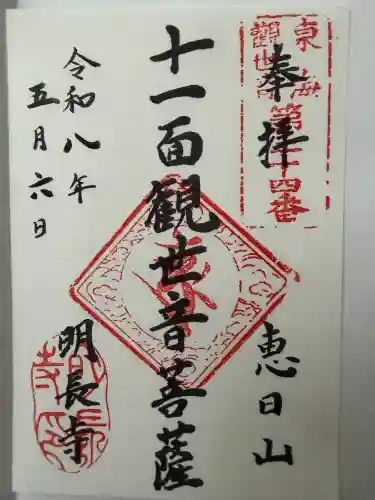 奉拝
東海
觀世音
第二十四番
恵日山
十一面観世音菩薩
令和八年
五月六日
明長寺